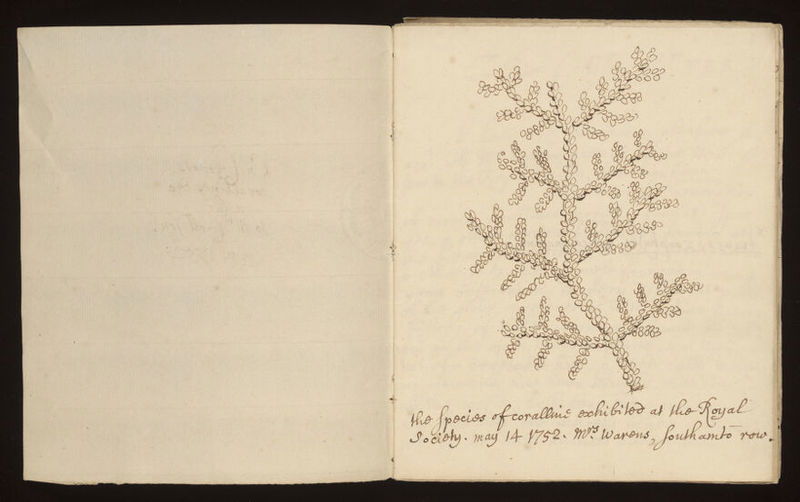 the species of coralline exhibited at the Royal
Society. may 14 1752. Mrs Warens, southamto row.